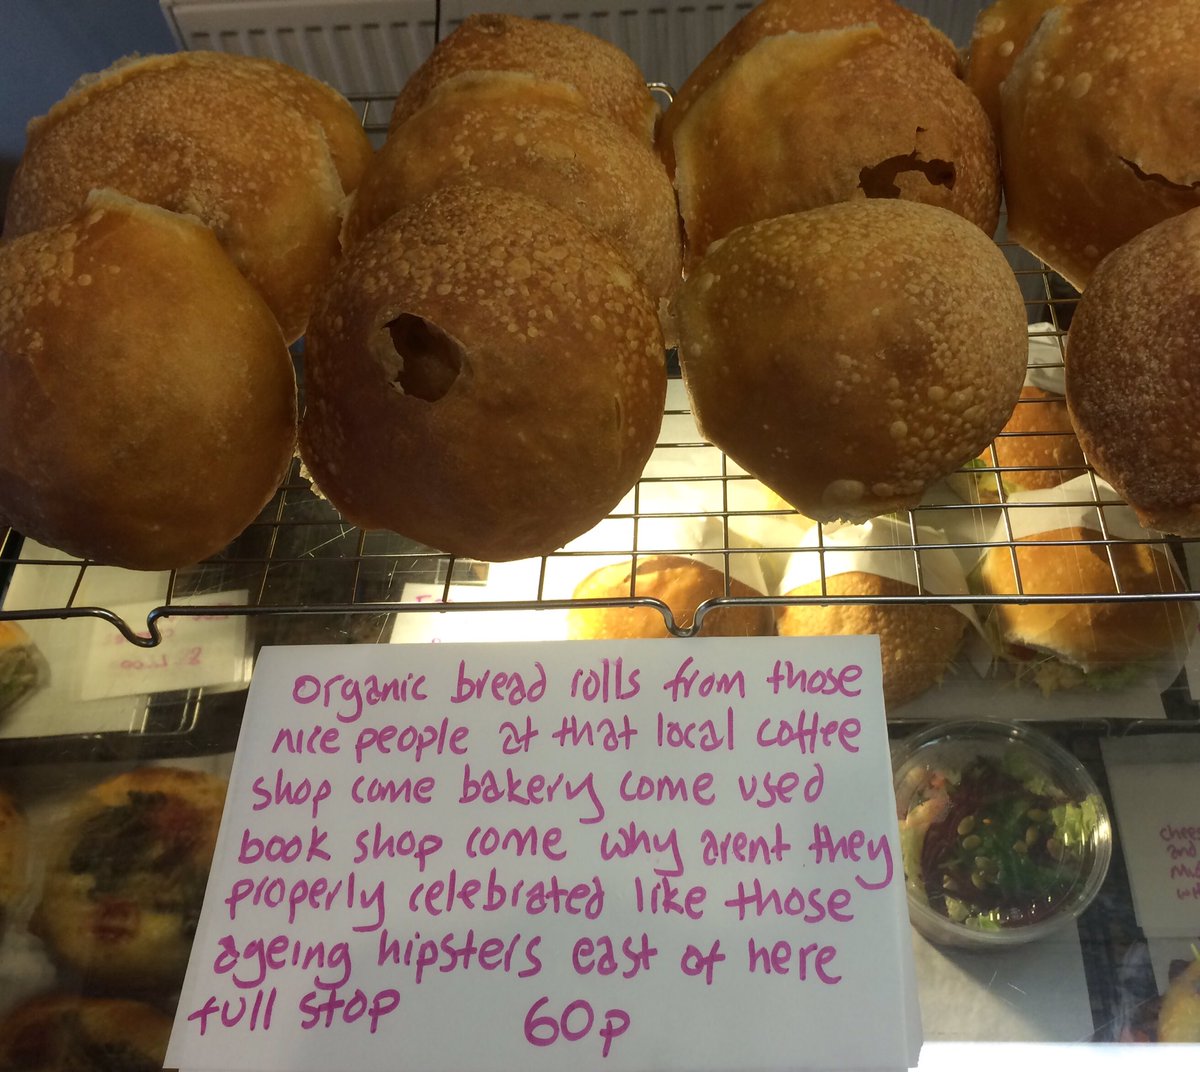 organic bread rolls from those
nice people at that local coffee
shop come bakery come used
book shop come why arent they
properly celebrated like those
ageing hipsters east of here
full stop 60p
chee
and